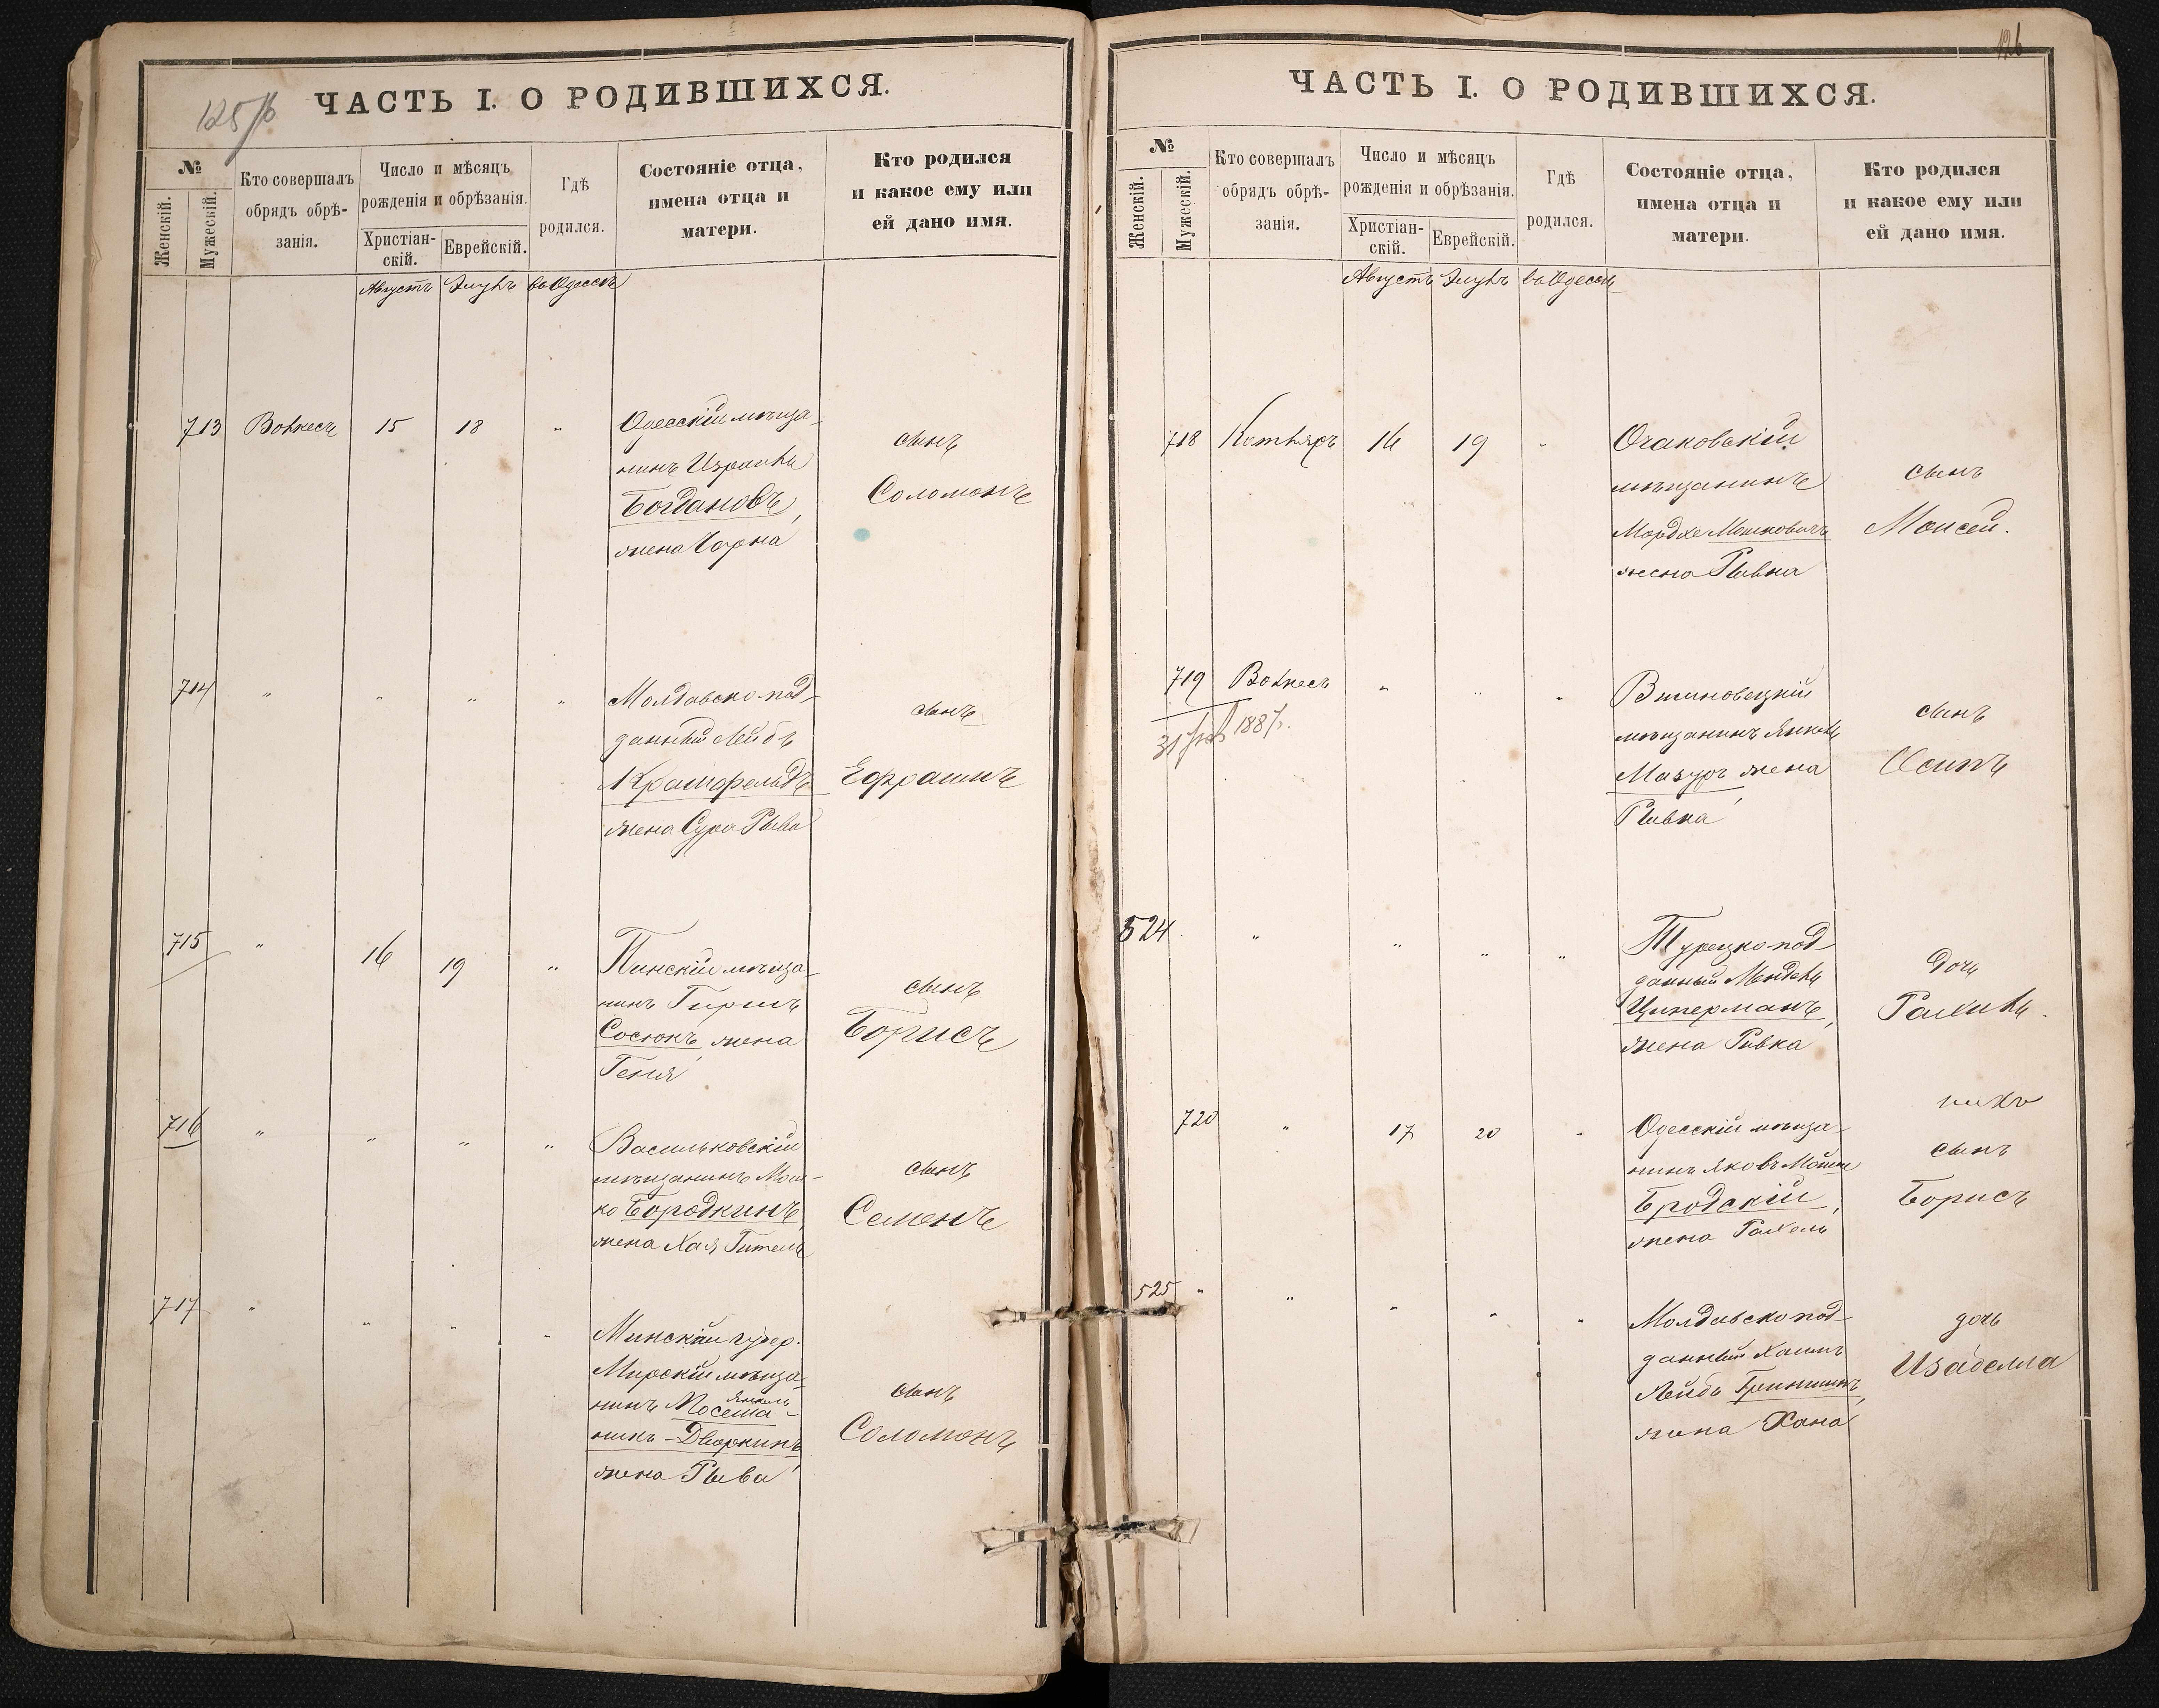 125/б
ЧАСТЬ I. О РОДИВШИХСЯ.
№
Женскій.
Мужескій.
Кто совершалъ
обрядъ обрѣ-
занія.
Число и мѣсяцъ
рожденія и обрѣзанія.
Христіан-
скій.
Еврейскій.
Гдѣ
родился.
Состояніе отца,
имена отца и
матери.
Кто родился
и какое ему или
ей дано имя.
Августъ Элулъ въ Одессѣ
713 15 18 " Одесскій мѣща-
нинъ Израиль
Богдановъ,
жена Чарна
сынъ
Соломонъ
714 " " " " Молдавско-под-
данный Лейбъ
жена Сура Рыва
сынъ
Ефроимъ
715 " 16 19 " Пинскій мѣща-
нинъ Гиршъ
Сосюкъ, жена
Геня
сынъ
Борисъ
716 " " " " Васильковскій
мѣщанинъ Мош-
ко Бородкинъ,
жена Хая Гитель
сынъ
Семенъ
717 " " " " Минской губер.
Мирскій мѣща-
нинъ
Янкель
никъ-Дворкинъ,
жена Рыва
сынъ
Соломонъ
126
ЧАСТЬ I. О РОДИВШИХСЯ.
№
Женскій.
Мужескій.
Кто совершалъ
обрядъ обрѣ-
занія.
Число и мѣсяцъ
рожденія и обрѣзанія.
Христіан-
скій.
Еврейскій.
Гдѣ
родился.
Состояніе отца,
имена отца и
матери.
Кто родился
и какое ему или
ей дано имя.
Августъ Элулъ въ Одессѣ
718 Котляръ 16 19 " Очаковскій
мѣщанинъ
Мордхе Мошковичъ
жена Рывка
сынъ
Моисей.
719 " " "
мѣщанинъ Янкель
Мазуръ, жена
Рывка
сынъ
Осипъ
31 1887г.
524 " " " " Турецко-под-
данный Мендель
Циперманъ,
жена Ривка
дочь
Рахиль.
720 " 17 20 " Одесскій мѣща-
нинъ Яковъ Мойше
Бродскій,
жена Рахель
сынъ
Борисъ
525 " " " " " Молдавско под-
данный Хаимъ
Лейбъ
жена Хана
дочь
Изабелла